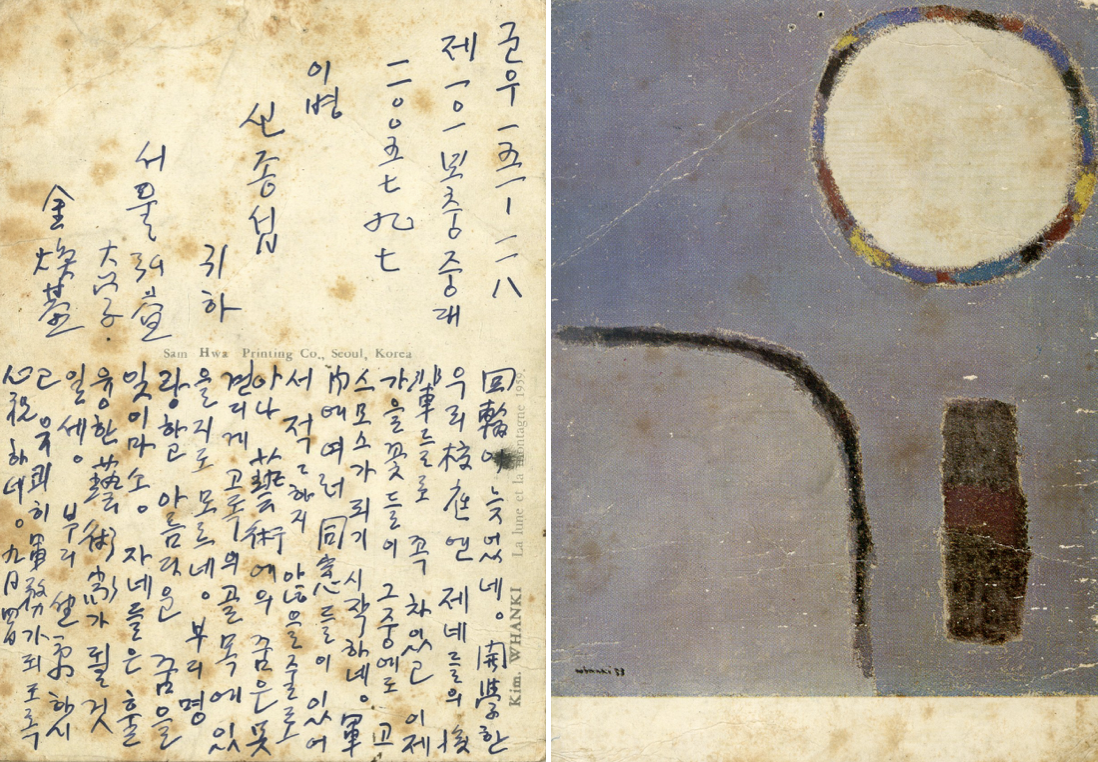 군우 一五一ㅣ二八
제一〇一 보충중대
二〇〇五七九七
이병
신종섭
귀하
서울 弘益
大学.
金煥基
Sam Hwa Printing Co., Seoul, Korea
Kim. WHANKI La lune et la montagne 1959.
回翰이 늦었네。 開學한
우리 校庭엔 제네들의 後
輩들로 꼭 차있고 이제
가을꽃들이 그중에도 고
스모스가 피기 시작하네。 軍
內에 여러 同窓들이 있어
서 적적하지 않을줄로
아나 藝術에의 꿈은 못
견디게 고독의 골목에 있
을지도 모르네。 부디 명
랑하고 아름다운 꿈을
잊이마소。 자네들은 훌
융한 藝術家가 될것
일세。 부디 健康하시
고 유쾌히 軍務가 되도록
心祝하네。 九月
whanki